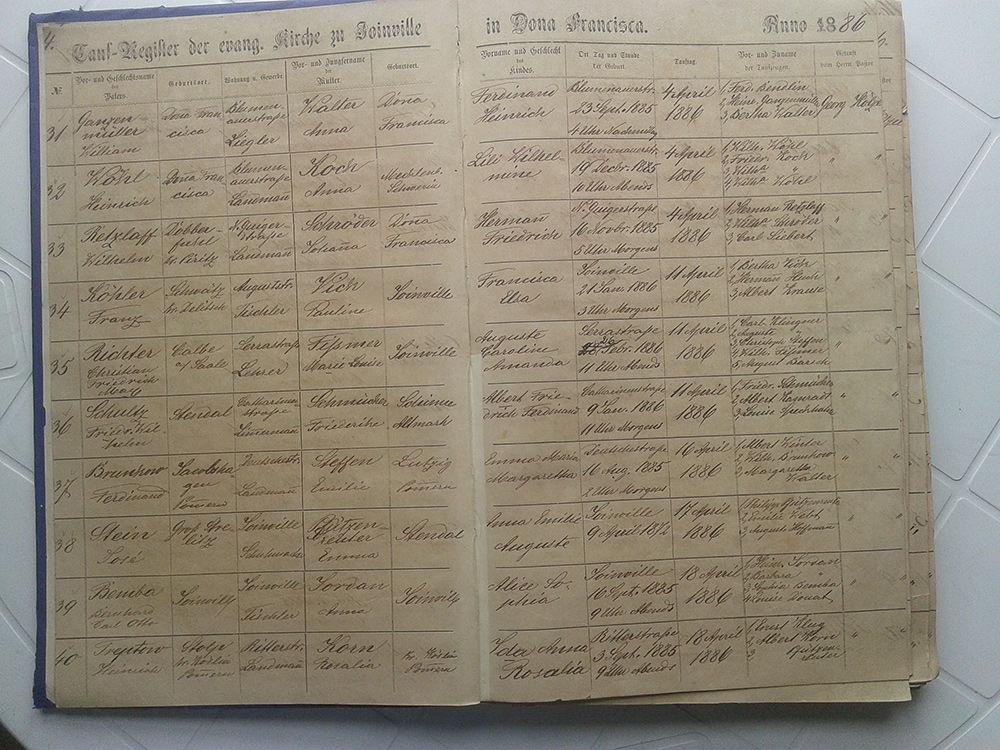 4.
Tauf-Register der evang. Kirche zu Joinville in Dona Francisca. Anno 1886
№
Vor- und Geschlechtsname des Vaters.
Geburtsort.
Wohnung u. Gewerbe
Vor- und Jungfername der Mutter.
Geburtsort.
Vorname und Geschlecht des Kindes.
Ort Tag und Stunde der Geburt.
Tauftag.
Vor- und Zuname der Taufzeugen.
Getauft vom Herrn Pastor
31
Ganzenmüller William
Dona Francisca
Blumenauerstraße Ziegler
Walter Anna
Dona Francisca
Ferdinand Heinrich
Blumenauerstr. 23 Sept. 1885 4 Uhr Nachmittag
4 April 1886
1, Ferd. Bendlin
2, Heinr. Ganzenmüller
3, Bertha Walter
Georg Hölzel
32
Köhl Heinrich
Dona Francisca
Blumenauerstraße Landmañ
Koch Anna
Mecklenb. Schwerin
Lili Wilhelmine
Blumenauerstr. 19 Decbr. 1885 10 Uhr Abends
4 April 1886
1, Wilh. Köhl
2, Friedr. Koch
3, Wilha "
4, Wilha Köhl
"
33
Retzlaff Wilhelm
Dobberpuhl br. Piritz
N. Guigerstraße Landmañ
Schröder Johaña
Dona Francisca
Hermañ Friedrich
N. Guigerstraße 16 Novbr. 1885 5 Uhr Morgens
4 April 1886
1, Herman Retzlaff
2, Wilha Schröder
3, Carl Siebert
"
34
Köhler Franz
br. Delitsch
Auguststr. Tischler
Vich Pauline
Joinville
Francisca Elsa
Joinville 21 Jan. 1886 3 Uhr Morgens
11 April 1886
1, Bertha Vich
2, Herman
3, Albert Krause
"
35
Richter Christian Friedrich Max
Calbe a/ Saale
Serrastraße Lehrer
Feßmer Marie Louise
Joinville
Auguste Caroline Amanda
Serrastraße 26 Febr. 1886 11 Uhr Abends
11 April 1886
1, Carl Klingner
2, Auguste "
3, Christoph Steffen
4, Wilh. Feßmer
5, August
"
36
Schultz Friedr. Wilhelm
Stendal
Catharinenstraße Zimerman
Schmücker Friederike
Altmark
Albert Friedrich Ferdinand
Catharinenstraße 9 Jan. 1886 11 Uhr Morgens
11 April 1886
1, Friedr. Schmücker
2, Albert
3, Louise
"
37
Brunkow Ferdinand
Jacobshagen Pomern
Deutschestr. Landmañ
Steffen Emilie
Lutzig Pomern
Emma Maria Margaretha
Deutschestraße 16 Aug. 1885 2 Uhr Morgens
16 April 1886
1, Albert Winter
2, Wilh. Brunkow
3, Margaretha Walter
"
38
Stein José
Groß
Joinville Schuhmacher
Pfützenreuter Emma
Stendal
Anna Emilie Auguste
Joinville 9 April
17 April 1886
1, Philipp Pfützenreuter
2, Emilie
3, August Hoffman
"
39
Bemba Bernhard Carl Otto
Joinville
Joinville Tischler
Jordan Anna
Joinville
Alice Sophia
Joinville 16 Sept. 1885 9 Uhr Abends
18 April 1886
1, Heinr. Jordan
2, Barbara "
3, Bemba
4, Louise Douat
"
40
Treptow Heinrich
Stolp br. Köslin Pomern
Ritterstraße Landmañ
Korn Rosalia
br. Köslin Pomern
Ida Anna Rosalia
Ritterstraße 3 Sept. 1885 9 Uhr Abends
18 April 1886
1, Ernst Klug
2, Albert Korn
3, Pfützenreuter
"